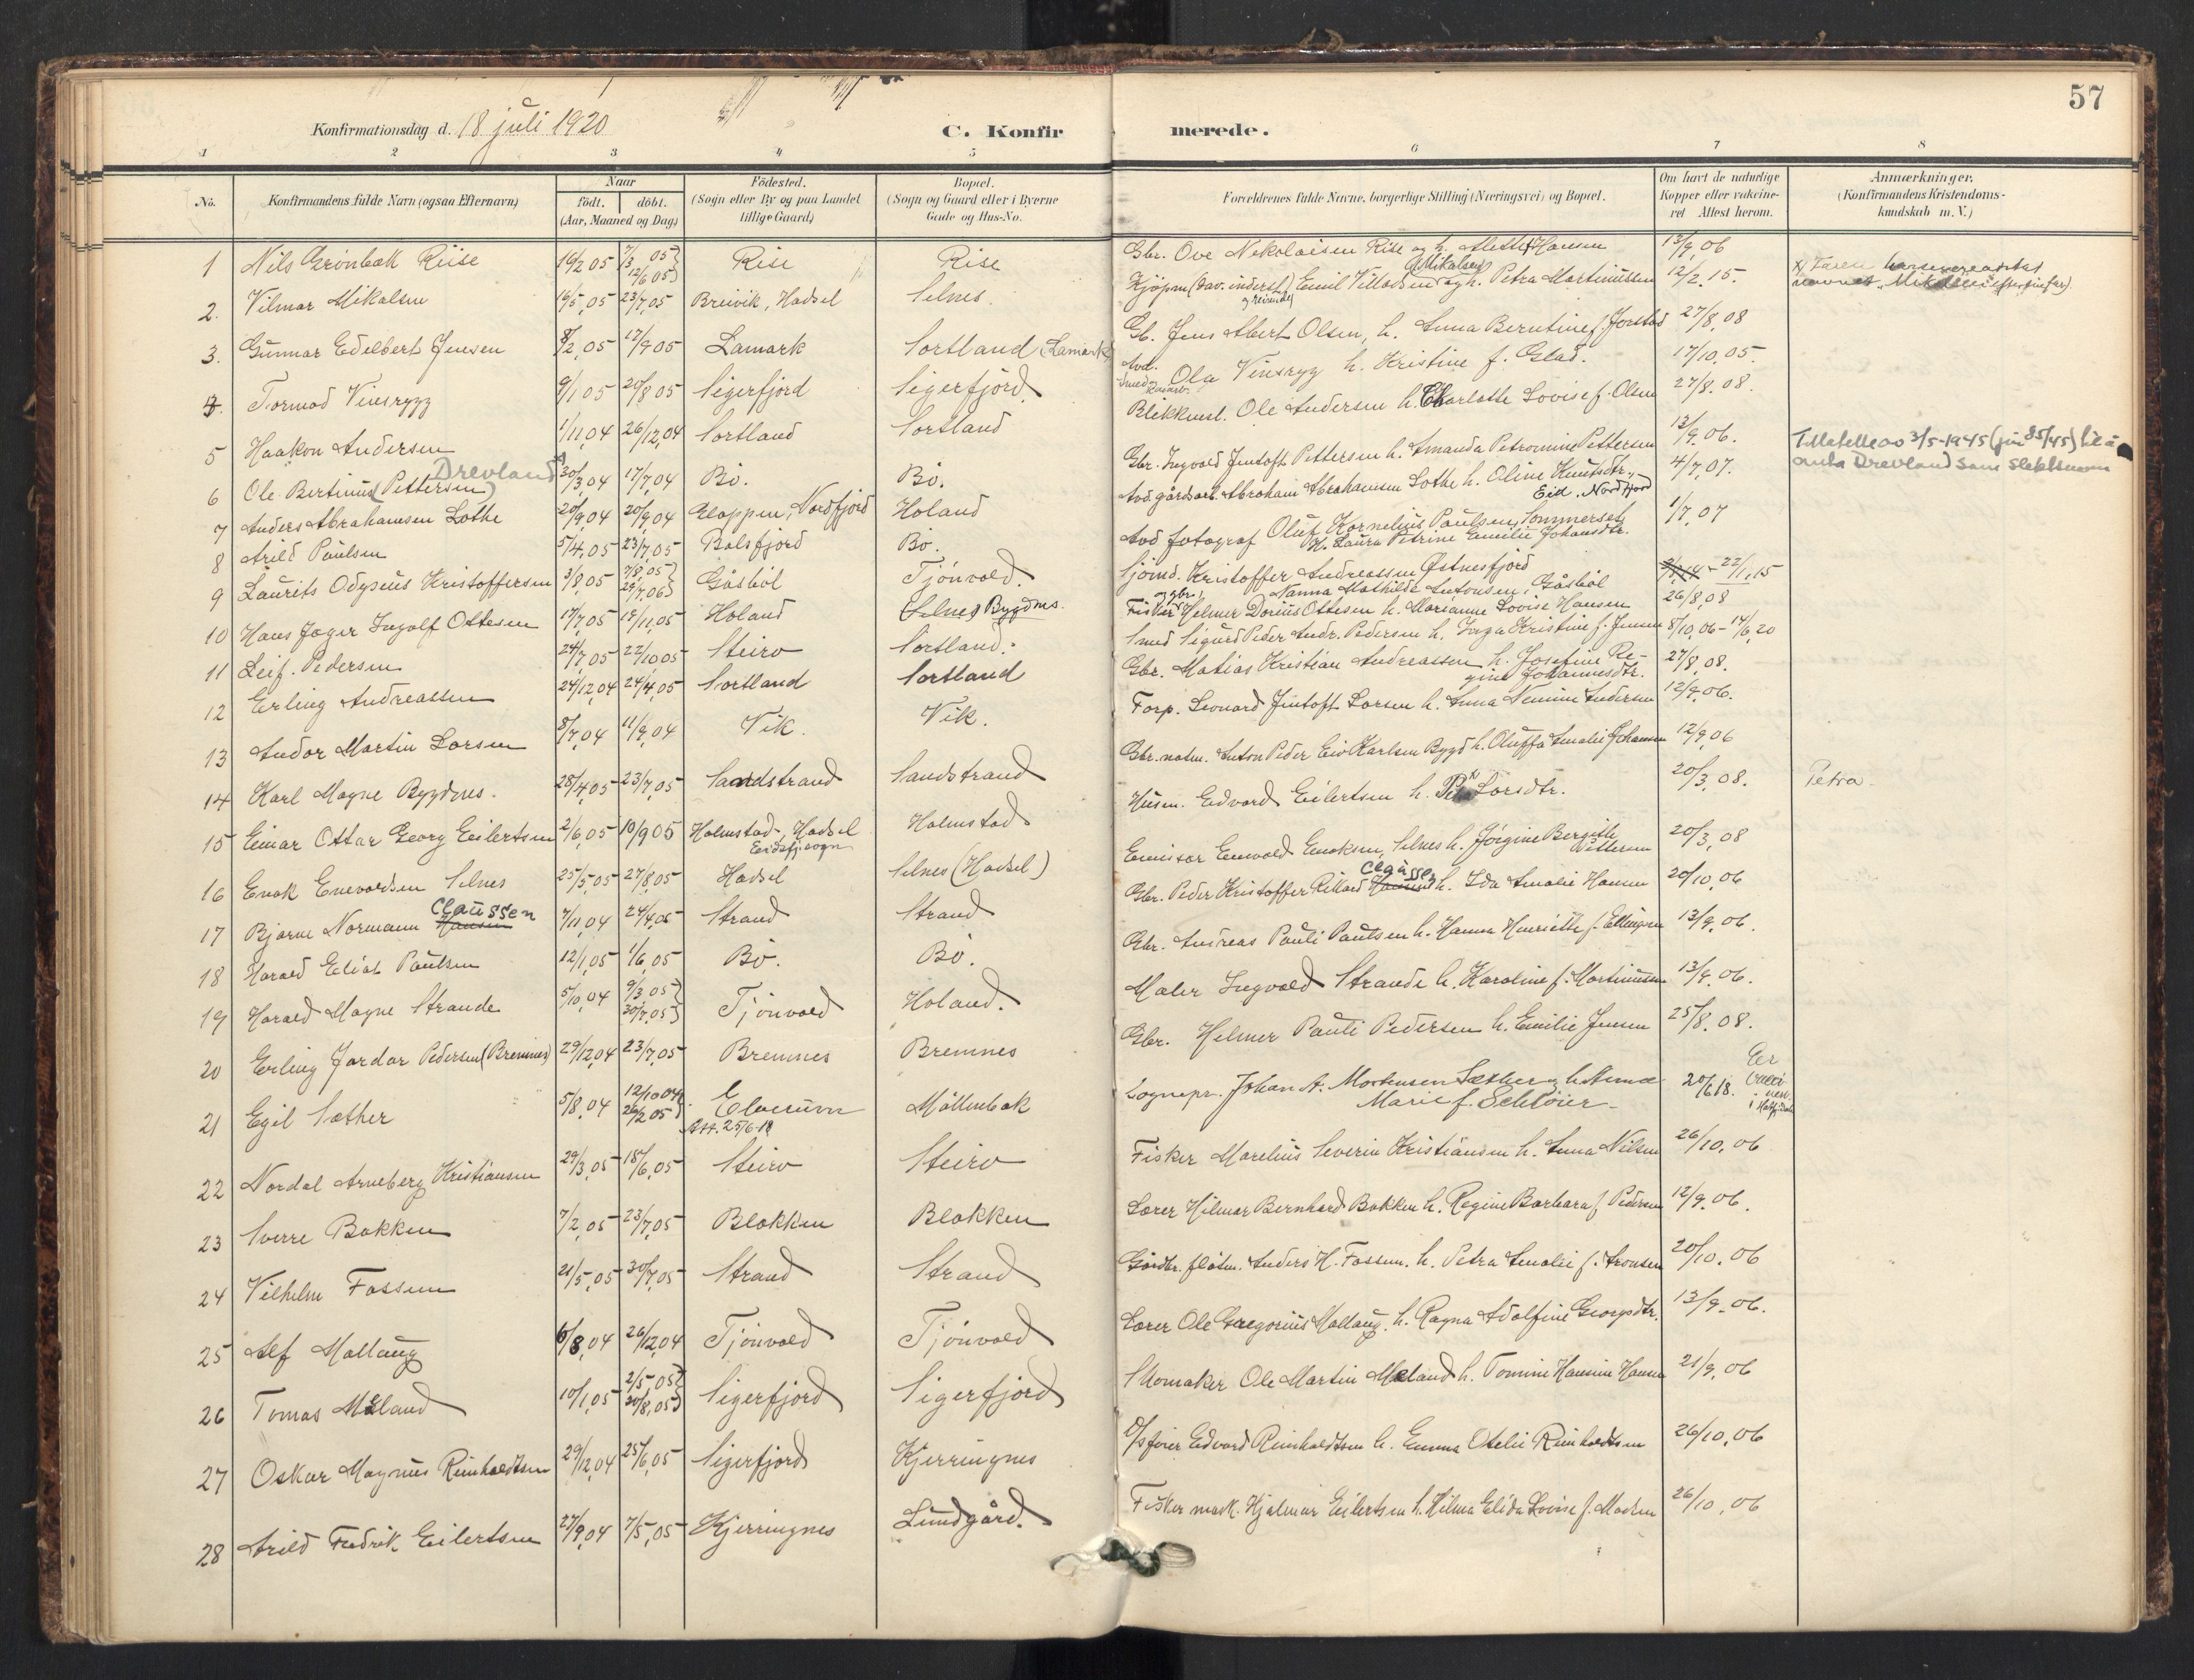 57
Konfirmationsdag d. 18 juli 1920
C. Konfirmerede.
1 2 3 4 5 6 7 8
No. Konfirmandens fulde Navn (ogsaa Efternavn) Naar født. døbt. (Aar, Maaned og Dag) Fødested. (Sogn eller By og paa Landet tillige Gaard) Bopæl. (Sogn og Gaard eller i Byerne Gade og Hus-No. Forældrenes fulde Navne, borgerlige Stilling (Næringsvei) og Bopæl. Om havt de naturlige Kopper eller vaccineret Attest herom. Anmærkninger. (Konfirmandens Kristendomskundskab m. V.)
1 Nils Grönbæk Riise 19/2 05 7/3 05 12/6 05 Rise Rise Gbr. Ove Nikolaisen Rise og h. Alette Hansen 13/9, 06
2. Vilmar Mikalsen 16/5, 05 23/7, 05 Breivik, Hadsel Selnes. Kjöpm (Dav. inderst) Emil Villadsen (Mikalsen) og h. Petra Martinussen 12/2. 15.
3. Gunnar Edelbert Jensen 8/2, 05 17/9 05 Lamark Sortland (Lamark) Gb. Jens Albert Olsen, h. Anna Berntine f. Jorstad 27/8, 08
4. Tormod Vinsrygg 9/1 05 20/8 05 Sigerfjord Sigerfjord. Ola Vinsryg h. Kristine f. Glad. 17/10, 05.
5 Haakon Andersen 1/11, 04 26/12, 04 Sortland Sortland Blikkensl. Ole Andersen h. Charlotte Lovise f. Olsen 27/8. 08.
6 Ole Bertinus (Pettersen) Drevland 30/3, 04 17/7, 04 Bö. Bö. Gbr. Ingvald Jentoft Pettersen h. Amanda Petromine Pettersen 13/9. 06. 3/5-1945 Drevland som slektsnavn
7 Anders Abrahamsen Lothe 20/9, 04 20/9, 04 Gloppen, Nordfjord Holand Avd. gårdsarb. Abraham Abrahamsen Lothe h. Oline Knutsdtr., Eid, Nordfjord 4/7, 07.
8 Arild Paulsen 5/4, 05 23/7, 05 Balsfjord Bö. Avd fotograf Oluf Kornelius Paulsen, Sommerset, H. Laura Petrine Emilie Johansdtr. 1/7, 07
9 Laurits Odysius Kristoffersen 3/8, 05 7/8, 05 29/7, 06 Gåsböl Tjönvold. Sjömd. Kristoffer Andreassen Östnesfjord og gbr. Nanna Mathilde Antonsen, Gåsböl 22/1, 15
10 Hans Jæger Ingolf Ottesen 17/7, 05 19/11, 05 Holand Selnes Bygdnes. Fisker Helmer Dorius Ottesen h. Marianne Lovise Hansen 26/8, 08
11 Leif. Pedersen 24/7, 05 22/10 05 Steiro Sortland. Smed Sigurd Peder Andr. Pedersen h. Inga Kristine f. Jensen 8/10, 06 - 14/6, 20
12 Erling Andreassen 24/12, 04 24/4, 05 Sortland Sortland Gbr. Matias Kristian Andreassen h. Josefine Regine Johannesdtr. 27/8, 08.
13 Andor Martin Larsen 8/7, 04 11/9, 04 Vik. Vik. Forp. Leonard Jentoft Larsen h. Anna Nemine Andersen 12/9. 06.
14 Karl Magne Bygdnes. 28/4, 05 23/7, 05 Sandstrand Sandstrand Gbr. notm. Anton Peder Eiv Karlsen Bygd h. Oluffa Amalie Johansen 12/9, 06
15 Einar Ottar Georg Eilertsen 2/6, 05 10/9 05 Holmstad, Hadsel Holmstad Husm. Edvard Eilertsen h. Larsdtr. 20/3, 08. Petra
16 Enok Enevoldsen Selnes 25/5, 05 27/8, 05 Hadsel Selnes (Hadsel) Emissær Enevold Enoksen, Selnes h. Jörgine Bergithe Pettersen 20/3, 08
17 Bjarne Normann Hansen Claussen 7/11, 04 24/4, 05 Strand Strand Gbr. Peder Kristoffer Rikard Hansen Claussen h. Ida Amalie Hansen 20/10, 06
18 Harald Eliot Paulsen 12/1, 05 1/6, 05 Bö. Bö. Gbr. Andreas Pauli Paulsen h. Hanna Henriette f. Ellingsen 13/9, 06.
19 Harald Magne Strande 5/10, 04 9/3, 05 30/7, 05 Tjönvold Holand. Maler Ingvald Strande h. Karoline f. Martinussen 13/9. 06.
20 Erling Jardar Pedersen (Bremnes) 29/12, 04 23/7, 05 Bremnes Bremnes Gbr. Helmer Pauli Pedersen h. Emilie Jensen 25/8. 08.
21 Egil Sæther 5/8, 04 12/10 04 26/2 05 Elverum Att. 25/6-18 Möllenbak Sognepr. Johan A. Mortensen Sæther og h. Anna Marie f. Schlöier 20/6 18. Er vacci-
22 Nordal Arneberg Kristiansen 29/3, 05 18/6, 05 Steiro Steiro Fisker Marelius Severin Kristiansen h. Anna Nilsen 26/10, 06
23 Sverre Bakken 7/2, 05 23/7, 05 Blokken Blokken Lærer Hilmar Bernhard Bakken h. Regine Barbara f. Pedersen 12/9. 06.
24 Vilhelm Fossum 21/5, 05 30/7, 05 Strand Strand Gårdbr. flötm. Anders H. Fossum. h. Petra Amalie f. Aronsen 20/10. 06
25 Alf Mollaug 6/8, 04 26/12, 04 Tjönvold Tjönvold Lærer Ole Gregorius Mollaug. h. Ragna Adolfine Georgsdtr. 13/9. 06.
26 Tomas Mæland 10/1, 05 2/5, 05 20/8, 05 Sigerfjord Sigerfjord Skomaker Ole Martin Mæland h. Tomine Hansine Hansen 21/9, 06
27 Oskar Magnus Reinholdtsen 29/12, 04 25/6, 05 Sigerfjord Kjerringnes D/sförer Edvard Reinholdtsen h. Emma Otelie Reinholdtsen 26/10, 06
28 Arild Fredrik Eilertsen 27/9, 04 7/5, 05 Kjerringnes Lundgård. Fisker mask. Hjalmar Eilertsen h. Hilma Elida Lovise f. Madsen 26/10, 06